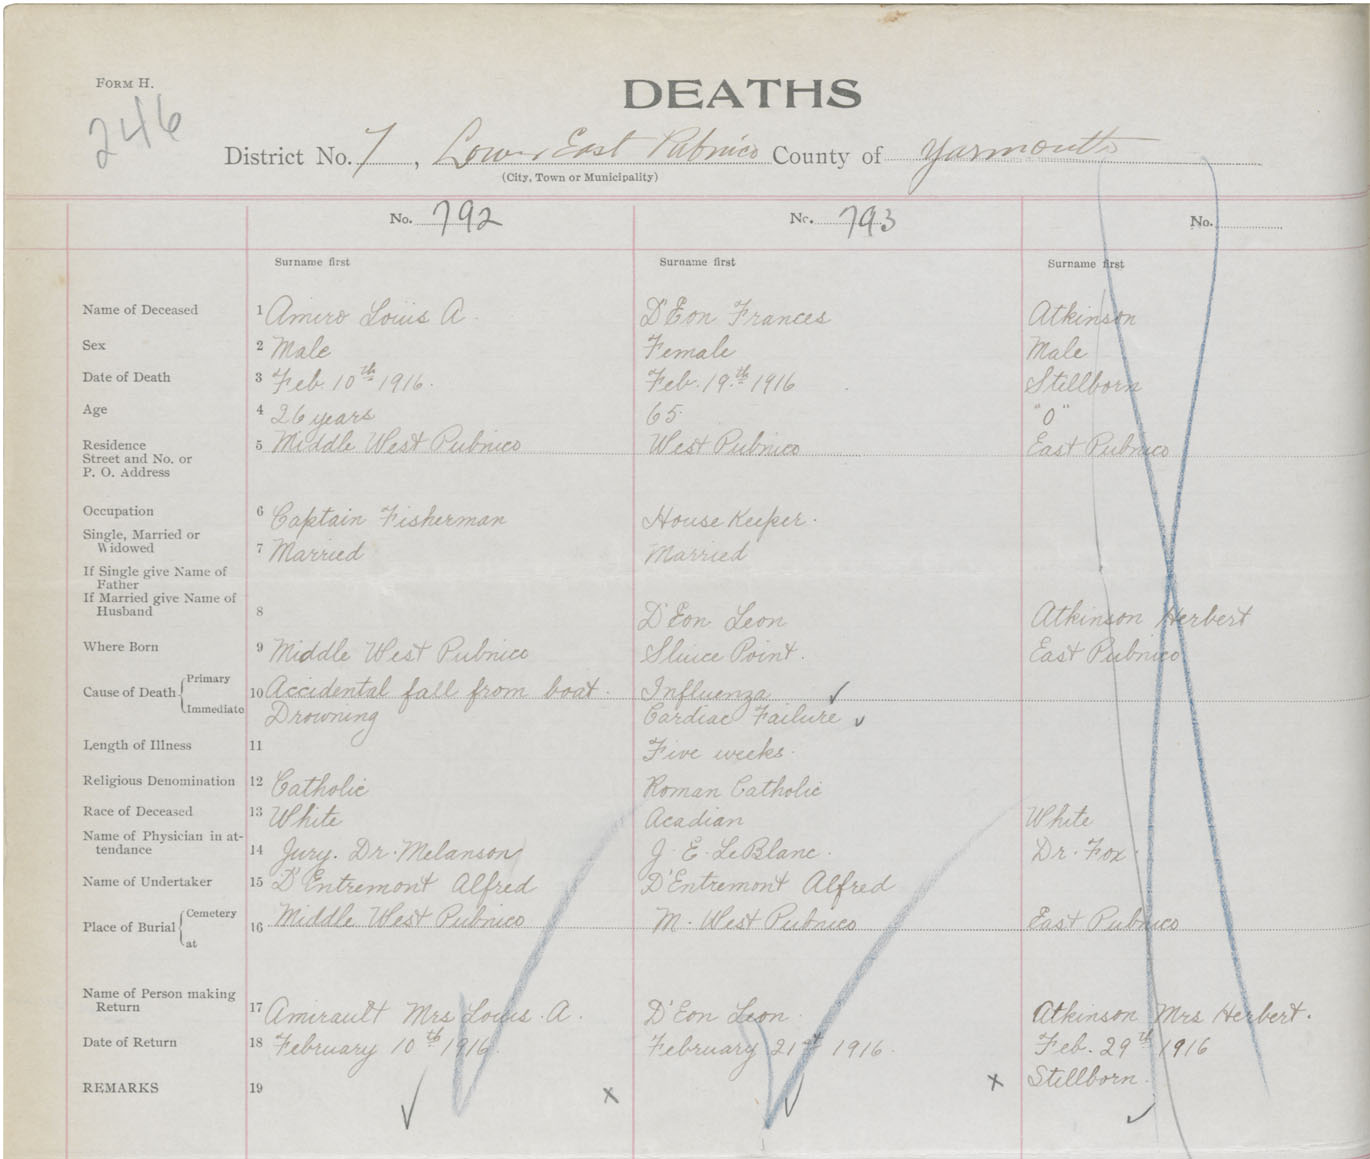 FORM H.
246
DEATHS
District No. 7, Lower East Pubnico County of Yarmouth
(City, Town or Municipality)
No. 792 No. 793 No.
Surname first Surname first Surname first
Name of Deceased 1 Amiro Louis A. D'Eon Frances Atkinson
Sex 2 Male Female Male
Date of Death 3 Feb. 10th 1916. Feb. 19th 1916 Stillborn
Age 4 26 years 65 "0"
Residence 5 Middle West Pubnico West Pubnico East Pubnico
Street and No. or
P. O. Address
Occupation 6 Captain Fisherman House Keeper.
Single, Married or
Widowed 7 Married Married
If Single give Name of
Father
If Married give Name of
Husband 8 D'Eon Leon Atkinson Herbert
Where Born 9 Middle West Pubnico Sluice Point. East Pubnico
Cause of Death Primary 10 Accidental fall from boat. Influenza ✓
Immediate Drowning Cardiac Failure ✓
Length of Illness 11 Five weeks.
Religious Denomination 12 Catholic Roman Catholic
Race of Deceased 13 White Acadian White
Name of Physician in at-
tendance 14 Jury. Dr. Melanson J. E. LeBlanc. Dr. Fox.
Name of Undertaker 15 D'Entremont Alfred D'Entremont Alfred
Place of Burial Cemetery 16 Middle West Pubnico M. West Pubnico East Pubnico
at
Name of Person making
Return 17 Amirault Mrs Louis. A. D'Eon Leon. Atkinson Mrs Herbert.
Date of Return 18 February 10th 1916. February 21st 1916. Feb. 29th 1916
REMARKS 19 ✓ x ✓ x Stillborn. ✓